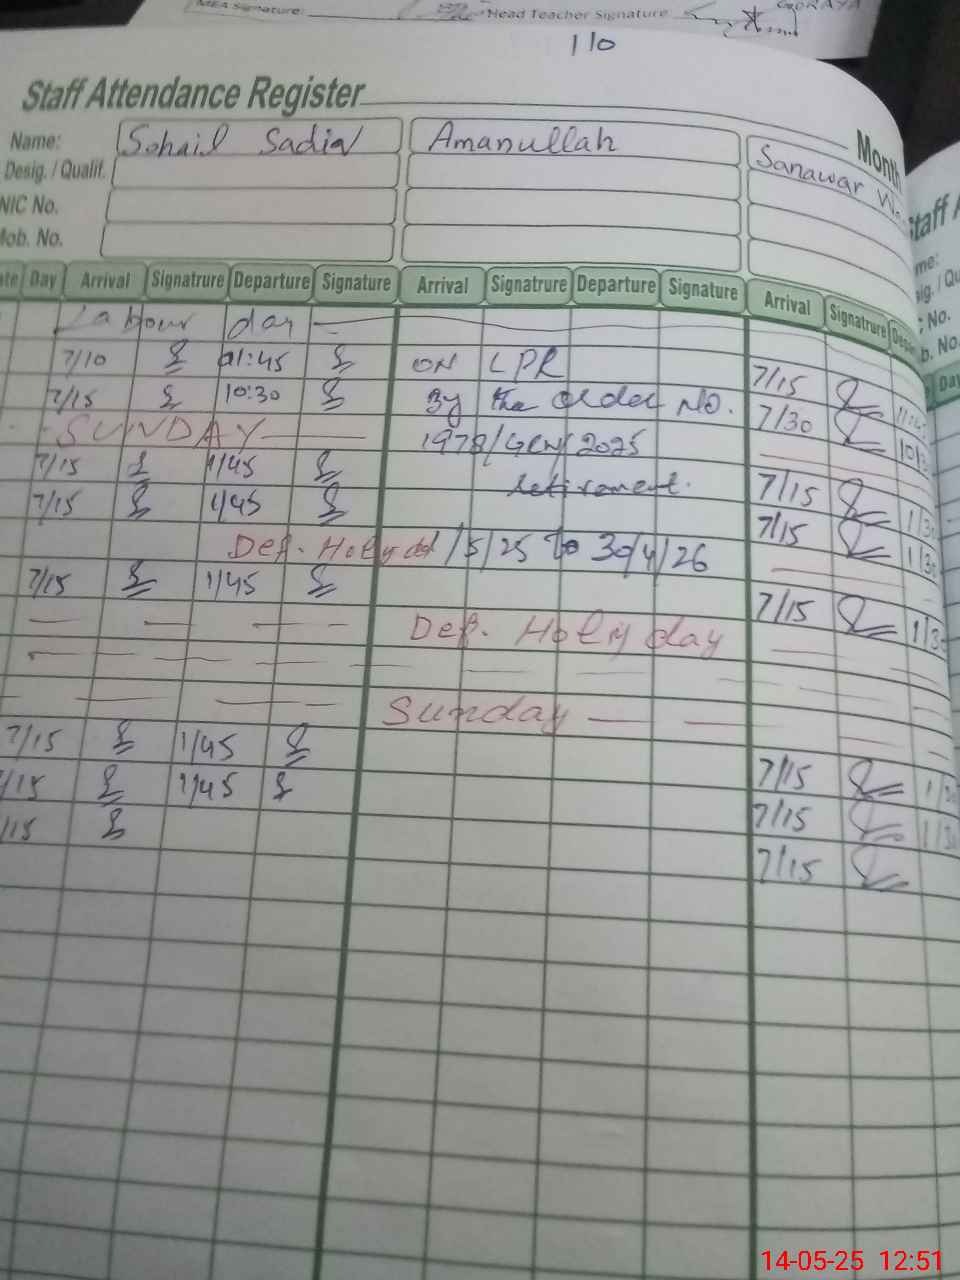 MEA Signature:
Head Teacher Signature
GORAYA
110
Staff Attendance Register
Month
Name: Sohail Sadiq Amanullah Sanawar
Desig. / Qualif.
NIC No.
Mob. No.
Day Arrival Signatrure Departure Signature Arrival Signatrure Departure Signature Arrival Signatrure
Labour day
7/10 01:45 ON LPR 7/15
7/15 10:30 By the order No. 7/30
SUNDAY 1978/GEN/2025
7/15 1/45 Retirement. 7/15 1/30
7/15 1/45 7/15 1/30
Def. Holy d 1/5/25 to 30/4/26
7/15 1/45 7/15 1/30
Def. Holy day
Sunday
7/15 1/45 7/15 1/30
7/15 1/45 7/15 1/30
7/15 7/15
Staff A
No.
Day
14-05-25 12:51